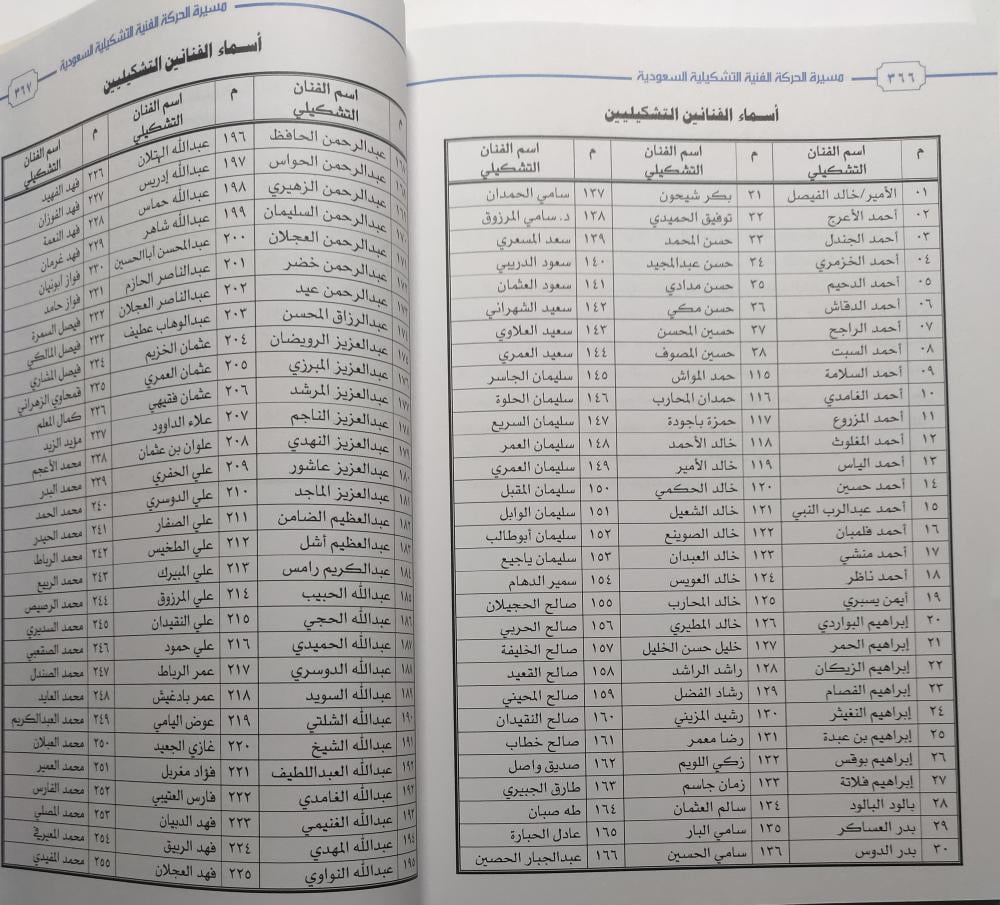 مسيرة الحركة الفنية التشكيلية السعودية ٣٦٦
أسماء الفنانين التشكيليين
م اسم الفنان التشكيلي م اسم الفنان التشكيلي م اسم الفنان التشكيلي
٠١ الأمير/خالد الفيصل ٣١ بكر شيحون ١٣٧ سامي الحمدان
٠٢ أحمد الأعرج ٣٢ توفيق الحميدي ١٣٨ د. سامي المرزوق
٠٣ أحمد الجندل ٣٣ حسن المحمد ١٣٩ سعد المسعري
٠٤ أحمد الخزمري ٣٤ حسن عبدالمجيد ١٤٠ سعود الدريبي
٠٥ أحمد الدحيم ٣٥ حسن مدادي ١٤١ سعود العثمان
٠٦ أحمد الدقاش ٣٦ حسن مكي ١٤٢ سعيد الشهراني
٠٧ أحمد الراجح ٣٧ حسين المحسن ١٤٣ سعيد العلاوي
٠٨ أحمد السبت ٣٨ حسين المصوف ١٤٤ سعيد العمري
٠٩ أحمد السلامة ١١٥ حمد المواش ١٤٥ سليمان الجاسر
١٠ أحمد الغامدي ١١٦ حمدان المحارب ١٤٦ سليمان الحلوة
١١ أحمد المزروع ١١٧ حمزة باجودة ١٤٧ سليمان السريع
١٢ أحمد المغلوث ١١٨ خالد الأحمد ١٤٨ سليمان العمر
١٣ أحمد الياس ١١٩ خالد الأمير ١٤٩ سليمان العمري
١٤ أحمد حسين ١٢٠ خالد الحكمي ١٥٠ سليمان المقبل
١٥ أحمد عبدالرب النبي ١٢١ خالد الشعيل ١٥١ سليمان الوابل
١٦ أحمد فلمبان ١٢٢ خالد الصوينع ١٥٢ سليمان أبوطالب
١٧ أحمد منشي ١٢٣ خالد العبدان ١٥٣ سليمان ياجيع
١٨ أحمد ناظر ١٢٤ خالد العويس ١٥٤ سمير الدهام
١٩ أيمن يسبري ١٢٥ خالد المحارب ١٥٥ صالح الحجيلان
٢٠ إبراهيم البواردي ١٢٦ خالد المطيري ١٥٦ صالح الحربي
٢١ إبراهيم الحمر ١٢٧ خليل حسن الخليل ١٥٧ صالح الخليفة
٢٢ إبراهيم الزيكان ١٢٨ راشد الراشد ١٥٨ صالح القعيد
٢٣ إبراهيم الفصام ١٢٩ رشاد الفضل ١٥٩ صالح المحيني
٢٤ إبراهيم النغيثر ١٣٠ رشيد المزيني ١٦٠ صالح النقيدان
٢٥ إبراهيم بن عبدة ١٣١ رضا معمر ١٦١ صالح خطاب
٢٦ إبراهيم بوقس ١٣٢ زكي اللويم ١٦٢ صديق واصل
٢٧ إبراهيم فلاتة ١٣٣ زمان جاسم ١٦٣ طارق الجبيري
٢٨ بالود البالود ١٣٤ سالم العثمان ١٦٤ طه صبان
٢٩ بدر العساكر ١٣٥ سامي البار ١٦٥ عادل الحبارة
٣٠ بدر الدوس ١٣٦ سامي الحسين ١٦٦ عبدالجبار الحصين
مسيرة الحركة الفنية التشكيلية السعودية ٣٦٧
أسماء الفنانين التشكيليين
م اسم الفنان التشكيلي م اسم الفنان التشكيلي م اسم الفنان التشكيلي
عبدالرحمن الحافظ ١٩٦ عبدالله الهتلان ٢٢٦ فهد الفهيد
عبدالرحمن الحواس ١٩٧ عبدالله إدريس ٢٢٧ فهد الفوزان
عبدالرحمن الزهيري ١٩٨ عبدالله حماس ٢٢٨ فهد النعمة
١٧٠ عبدالرحمن السليمان ١٩٩ عبدالله شاهر ٢٢٩ فهد غرمان
عبدالرحمن العجلان ٢٠٠ عبدالمحسن أباالحسين ٢٣٠ فواز ابونيان
عبدالرحمن خضر ٢٠١ عبدالناصر الحازم ٢٣١ فواز حامد
عبدالرحمن عيد ٢٠٢ عبدالناصر العجلان ٢٣٢ فيصل السمرة
عبدالرزاق المحسن ٢٠٣ عبدالوهاب عطيف ٢٣٣ فيصل المالكي
عبدالعزيز الرويضان ٢٠٤ عثمان الخزيم ٢٣٤ فيصل المشاري
١٧٦ عبدالعزيز المبرزي ٢٠٥ عثمان العمري ٢٣٥ قمحاوي الزهراني
١٧٧ عبدالعزيز المرشد ٢٠٦ عثمان فقيهي ٢٣٦ كمال المعلم
١٧٨ عبدالعزيز الناجم ٢٠٧ علاء الداوود ٢٣٧ مؤيد الزيد
١٧٩ عبدالعزيز النهدي ٢٠٨ علوان بن عثمان ٢٣٨ محمد الأعجم
١٨٠ عبدالعزيز عاشور ٢٠٩ علي الحفري ٢٣٩ محمد البدر
١٨١ عبدالعزيز الماجد ٢١٠ علي الدوسري ٢٤٠ محمد الحمد
١٨٢ عبدالعظيم الضامن ٢١١ علي الصفار ٢٤١ محمد الحيدر
١٨٣ عبدالعظيم أشل ٢١٢ علي الطخيس ٢٤٢ محمد الرباط
١٨٤ عبدالكريم رامس ٢١٣ علي المبيرك ٢٤٣ محمد الربيع
١٨٥ عبدالله الحبيب ٢١٤ علي المرزوق ٢٤٤ محمد الرصيص
١٨٦ عبدالله الحجي ٢١٥ علي النقيدان ٢٤٥ محمد السديري
١٨٧ عبدالله الحميدي ٢١٦ علي حمود ٢٤٦ محمد الصقعبي
١٨٨ عبدالله الدوسري ٢١٧ عمر الرباط ٢٤٧ محمد الصندل
١٨٩ عبدالله السويد ٢١٨ عمر بادغيش ٢٤٨ محمد العايد
١٩٠ عبدالله الشلتي ٢١٩ عوض اليامي ٢٤٩ محمد العبدالكريم
١٩١ عبدالله الشيخ ٢٢٠ غازي الجعيد ٢٥٠ محمد العبلان
١٩٢ عبدالله العبداللطيف ٢٢١ فؤاد مغربل ٢٥١ محمد العمير
١٩٢ عبدالله الغامدي ٢٢٢ فارس العتيبي ٢٥٢ محمد الفارس
١٩٣ عبدالله الغنيمي ٢٢٣ فهد الدبيان ٢٥٣ محمد المصلي
١٩٤ عبدالله المهدي ٢٢٤ فهد الربيق ٢٥٤ محمد
١٩٥ عبدالله النواوي ٢٢٥ فهد العجلان ٢٥٥ محمد المفيدي